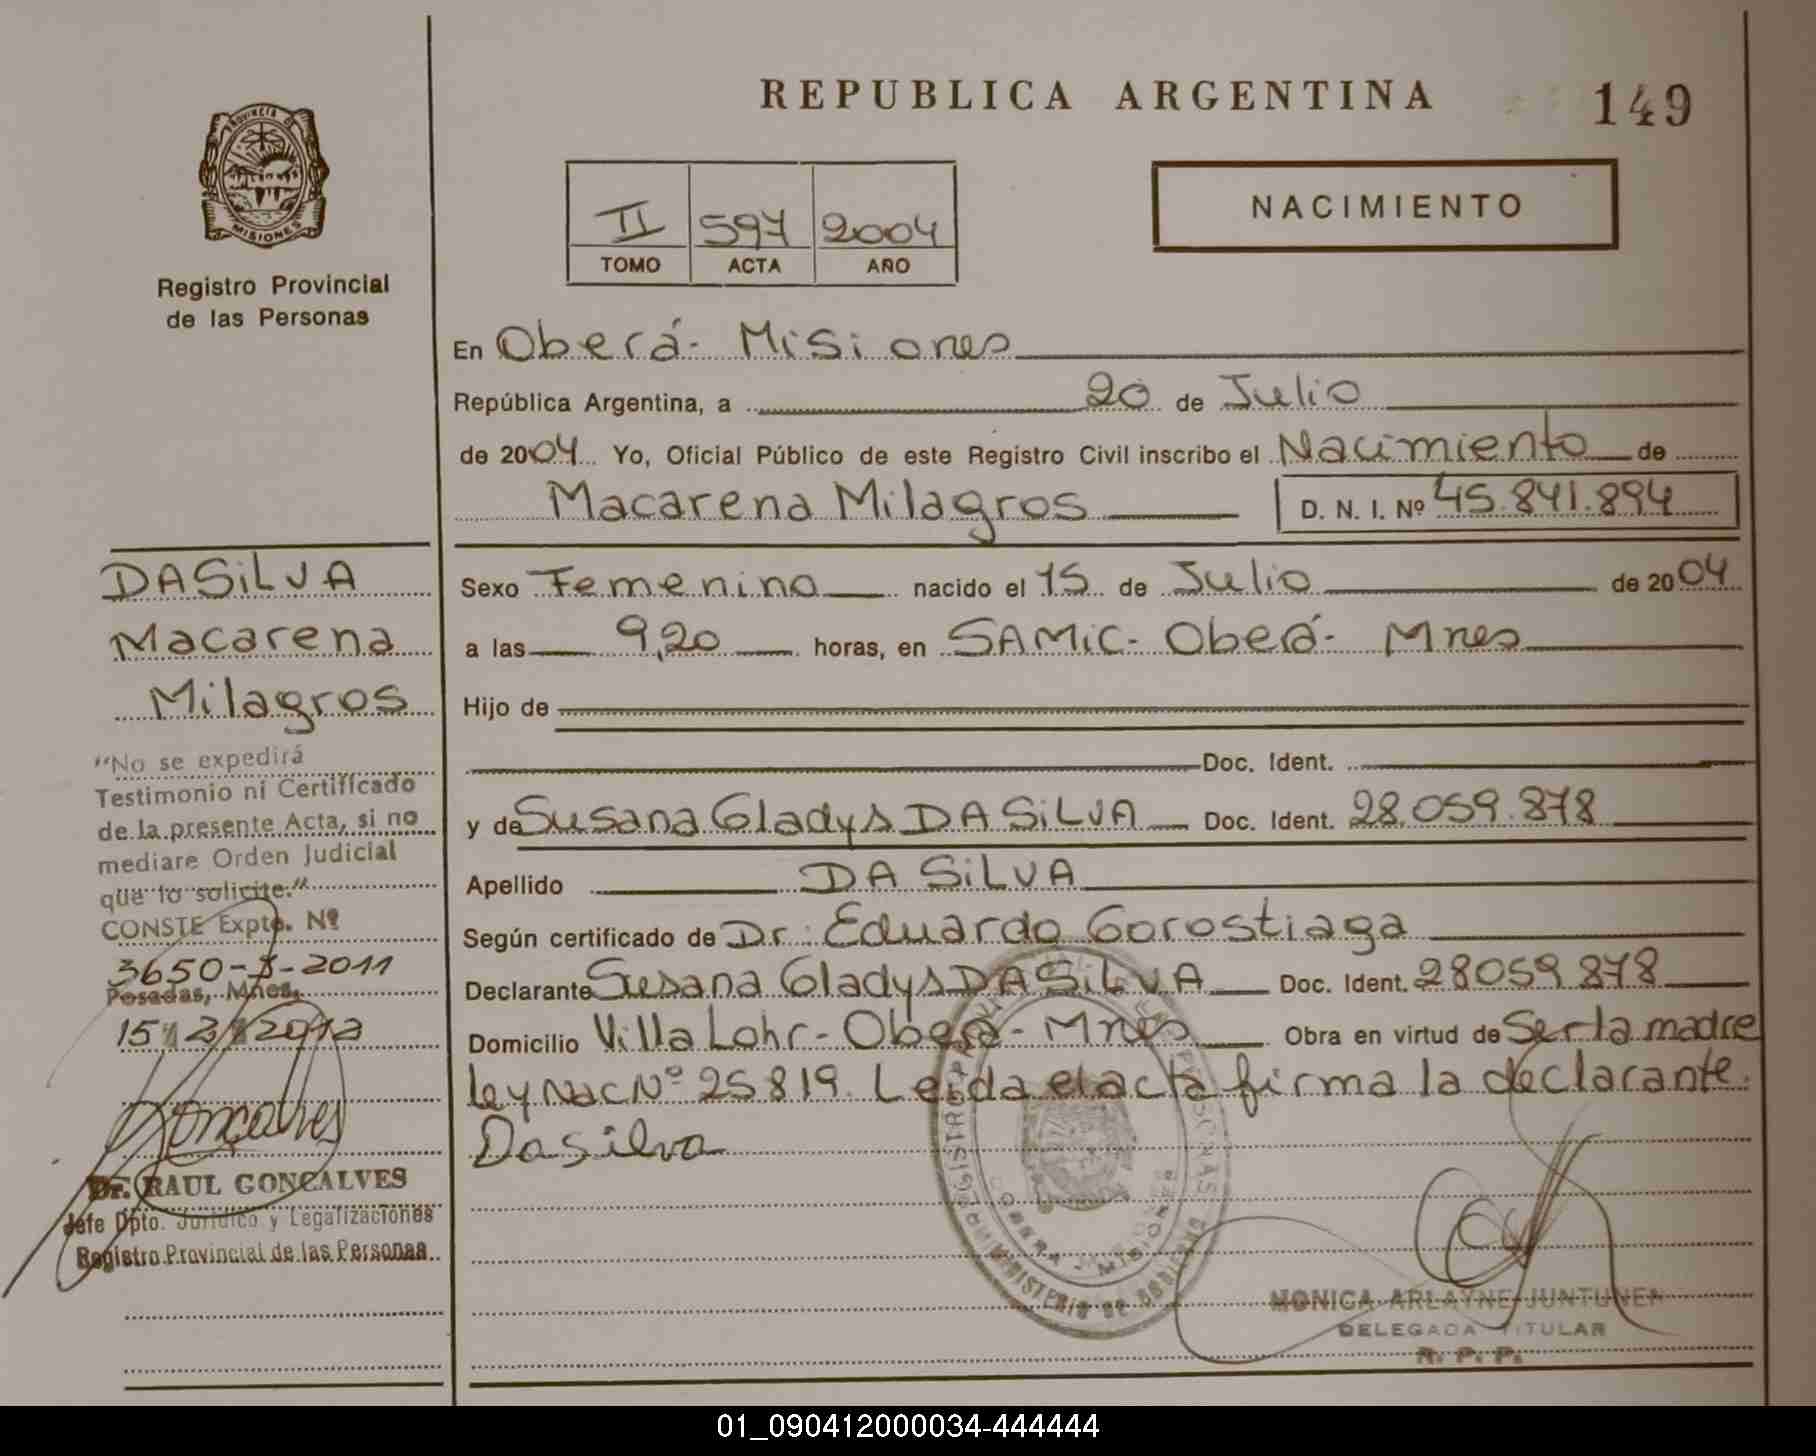 REPUBLICA ARGENTINA
149
PROVINCIA DE
MISIONES
Registro Provincial
de las Personas
II 597 2004
TOMO ACTA AÑO
NACIMIENTO
En Oberá - Misiones
República Argentina, a 20 de Julio
de 2004 Yo, Oficial Público de este Registro Civil inscribo el Nacimiento de
Macarena Milagros D. N. I. Nº 45.841.894
Sexo Femenino nacido el 15 de Julio de 2004
a las 9,20 horas, en SAMiC - Oberá - Mnes
Hijo de
Doc. Ident.
y de Susana Gladys DA SiLVA Doc. Ident. 28.059.878
Apellido DA SiLVA
Según certificado de Dr. Eduardo Gorostiaga
Declarante Susana Gladys DA SiLVA Doc. Ident. 28059878
Domicilio Villa Lohr - Oberá - Mnes Obra en virtud de Ser la madre
ley Nac Nº 25819. Leida el acta firma la declarante.
Da silva
MONICA ARLAYNE JUNTUNEN
DELEGADA TITULAR
R. P. P.
DASiLVA
Macarena
Milagros
"No se expedirá
Testimonio ni Certificado
de la presente Acta, si no
mediare Orden Judicial
que lo solicite."
CONSTE Expte. Nº
3650-
-2011
Posadas, Mnes,
15
Goncalves
Dr. RAUL GONCALVES
Jefe Dpto. Jurídico y Legalizaciones
Registro Provincial de las Personas
OBERA MISIONES
01_090412000034-444444